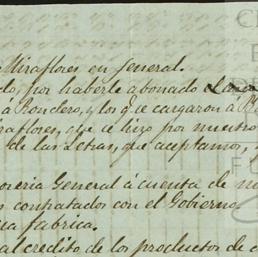 Miraflores en general.
do, por haberle abonado el
á Rondero, y los q.e se cargaron á
raflores, que se hizo por nuestro
de las Letras, que aceptamos,
oreria General á cuenta de
s contratados con el Gobierno
na fabrica.
al credito de los productos de